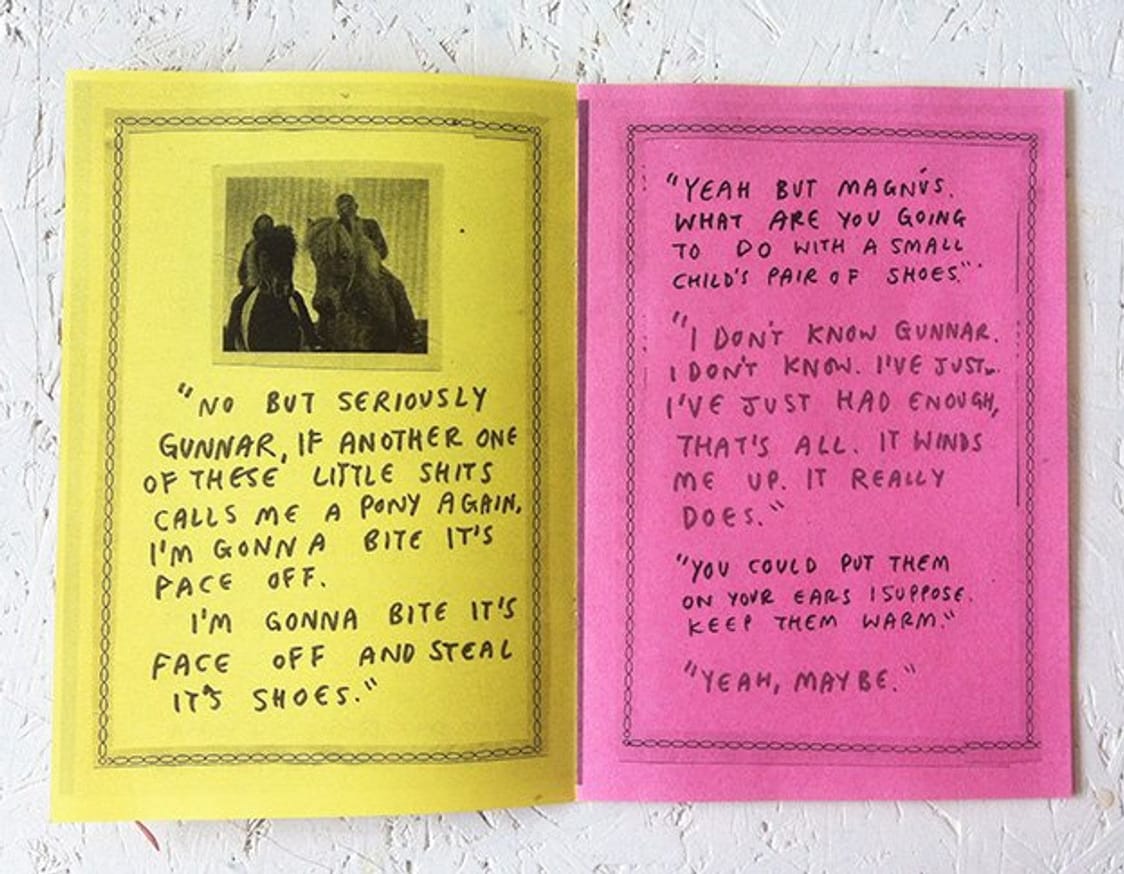 "NO BUT SERIOUSLY
GUNNAR, IF ANOTHER ONE
OF THESE LITTLE SHITS
CALLS ME A PONY AGAIN,
I'M GONNA BITE IT'S
FACE OFF.
I'M GONNA BITE IT'S
FACE OFF AND STEAL
IT'S SHOES."
"YEAH BUT MAGNUS.
WHAT ARE YOU GOING
TO DO WITH A SMALL
CHILD'S PAIR OF SHOES".
"I DON'T KNOW GUNNAR.
I DON'T KNOW. I'VE JUST..
I'VE JUST HAD ENOUGH,
THAT'S ALL. IT WINDS
ME UP. IT REALLY
DOES."
"YOU COULD PUT THEM
ON YOUR EARS I SUPPOSE.
KEEP THEM WARM."
"YEAH, MAYBE."